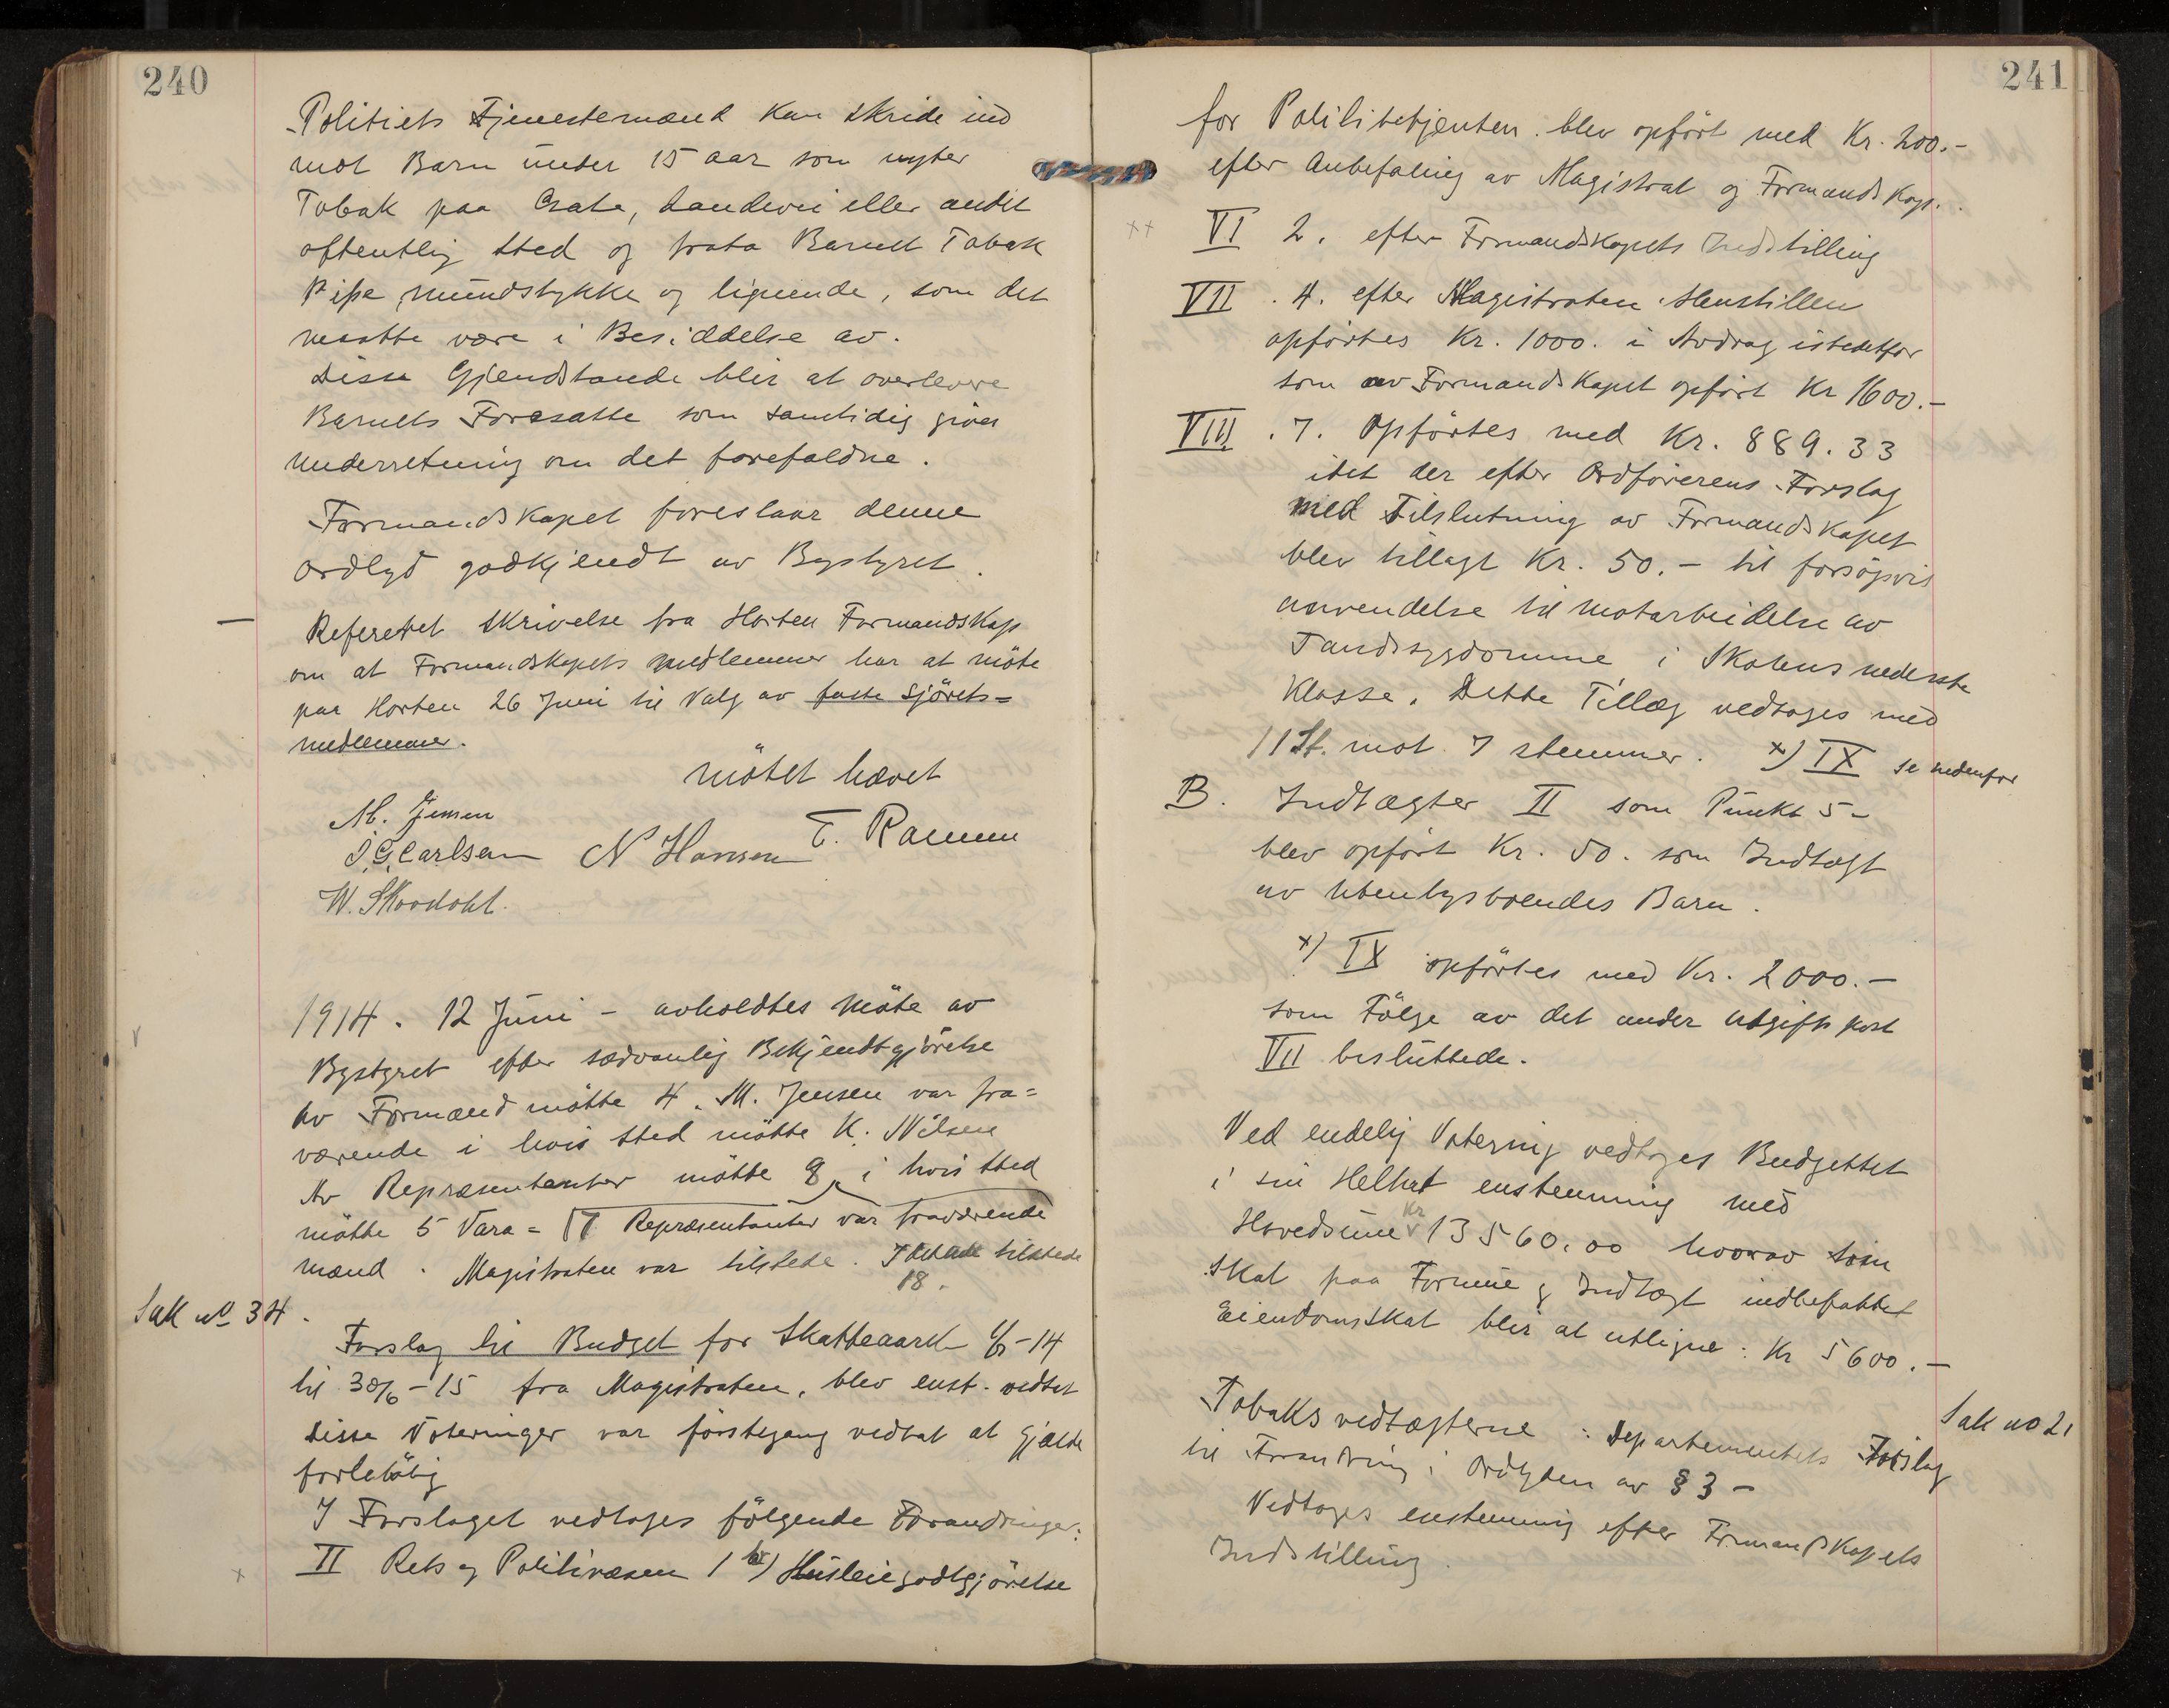 240
Politiets Tjenestemænd kan skride ind
mot Barn under 15 aar som nyter
Tobak paa Gate, Landevei eller andet
offentlig Sted og frata Barnet Tobak
Pipe, Mundstykke og lignende, som det
maatte være i Besiddelse av.
Disse Gjendstande blir at overlevere
Barnets Foresatte som samtidig gives
Underretning om det forefaldne.
Formandskapet foreslaar denne
Ordlyd godkjendt av Bystyret.
— Referertet Skrivelse fra Horten Formandskap
om at Formandskapets Medlemmer har at möte
paa Horten 26 Juni til Valg av faste Sjörets=
medlemmer.
Mötet hævet
M. Jensen
J. G. Carlsen N Hansen T.
W. Skovdahl.
1914. 12 Juni - avholdtes Möte av
Bystyret efter sædvanlig Bekjendtgjörelse
Av Formænd mötte 4. M. Jensen var fra=
værende i hvis Sted mötte K. Nilsen
Av Repræsentanter mötte 8, i hvis Sted
mötte 5 Vara= 7 Repræsentanter var fraværende
mænd. Magistraten var tilstede. Ialt tilstede
18.
Sak no 34.
Forslag til Budget for Skatteaaret 1/7-14
til 30/6-15 fra Magistraten, blev enst. vedtat
Disse Voteringer var förstegang vedtat at gjælde
forelöbig
I Forslaget vedtoges fölgende Forandringer:
x II Rets og Politivæsen 1 b) Husleiegodtgjörelse
241
for Politibetjenten blev opfört med Kr. 200.-
efter Anbefaling av Magistrat og Formandskap.
xx VI 2. efter Formandskapets Indstilling
VII. 4. efter Magistraten Henstillen
opförtes Kr. 1000. i Avdrag istedetfor
som av Formandskapet opfört Kr 1600.-
VIII. 7. Opförtes med Kr. 889.33
idet der efter Ordförerens Forslag
med Tilslutning av Formandskapet
blev tillagt Kr. 50.- til forsögsvis
anvendelse til Motarbeidelse av
Tandsygdomme i Skolens nederste
Klasse. Dette Tillæg vedtoges med
11 St. mot 7 stemmer. x) IX se nedenfor
B. Indtægter II som Punkt 5-
blev opfört Kr. 50. som Indtægt
av Utenbysboendes Barn.
x) IX opförtes med Kr. 2000.-
som Fölge av det under Utgifts post
VII besluttede.
Ved endelig Votering vedtoges Budgettet
i sin Helhet enstemmig med
Hovedsum Kr 13560.00 hvorav som
Skat paa Formue & Indtægt indbefattet
Eiendomsskat blir at utligne: Kr 5600.-
Sak no 21
Tobaksvedtægterne: Departementets Forslag
til Forandring i Ordlyden av § 3 -
Vedtoges enstemmig efter Formandskapets
Indstilling.